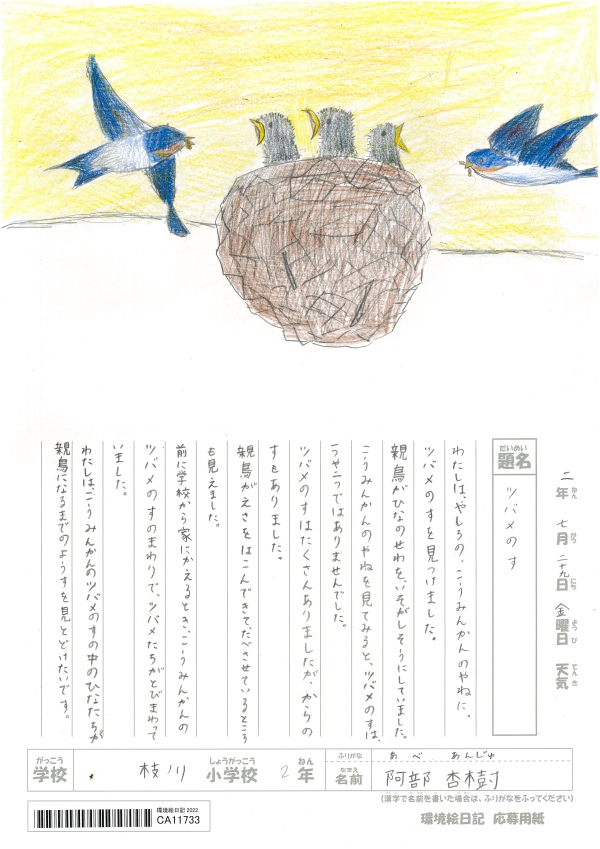 二年 七月 二十九日 金曜日 天気
ねん がつ にち ようび てんき
だいめい
題名
ツバメのす
わたしは、やしろの、こうみんかんのやねに、
ツバメのすを見つけました。
親鳥がひなのせわを、いそがしそうにしていました。
こうみんかんのやねを見てみると、ツバメのすは、
一つや二つではありませんでした。
ツバメのすはたくさんありましたが、からの
すもありました。
親鳥がえさをはこんできて、たべさせているところ
も見えました。
前に学校から家にかえるとき、こうみんかんの
ツバメのすのまわりで、ツバメたちがとびまわって
いました。
わたしは、こうみんかんのツバメのすの中のひなたちが
親鳥になるまでのようすを見とどけたいです。
がっこう
学校
枝川
しょうがっこう
小学校
2
ねん
年
ふりがな
あべ あんじゅ
なまえ
名前
阿部 杏樹
(漢字で名前を書いた場合は、ふりがなをふってください)
環境絵日記 2022
CA11733
環境絵日記 応募用紙